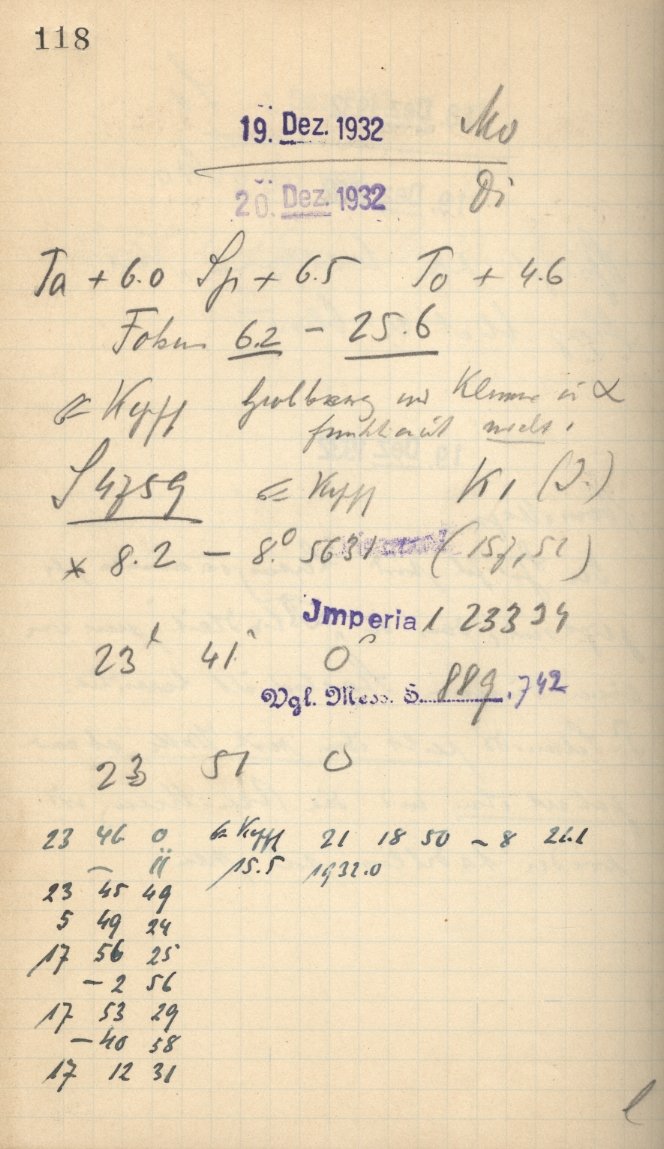 118
19. Dez. 1932 Mo
20. Dez. 1932 Di
Ta + 6.0 Sp + 6.5 To + 4.6
Fokus 6.2 – 25.6
Kopff Klemme in α
funktioniert nicht.
S 4759 Kopff K1 (J.)
* 8.2 – 8.° 5631 (157, 52)
Jmperial 23394
23h 41m 0s
Vgl. Mess. S. 889, 742
23 51 0
23 46 0 Kopff 21 18 50 – 8 22.1
– 11 15.5 1932.0
23 45 49
5 49 24
17 56 25
– 2 56
17 53 29
– 40 58
17 12 31